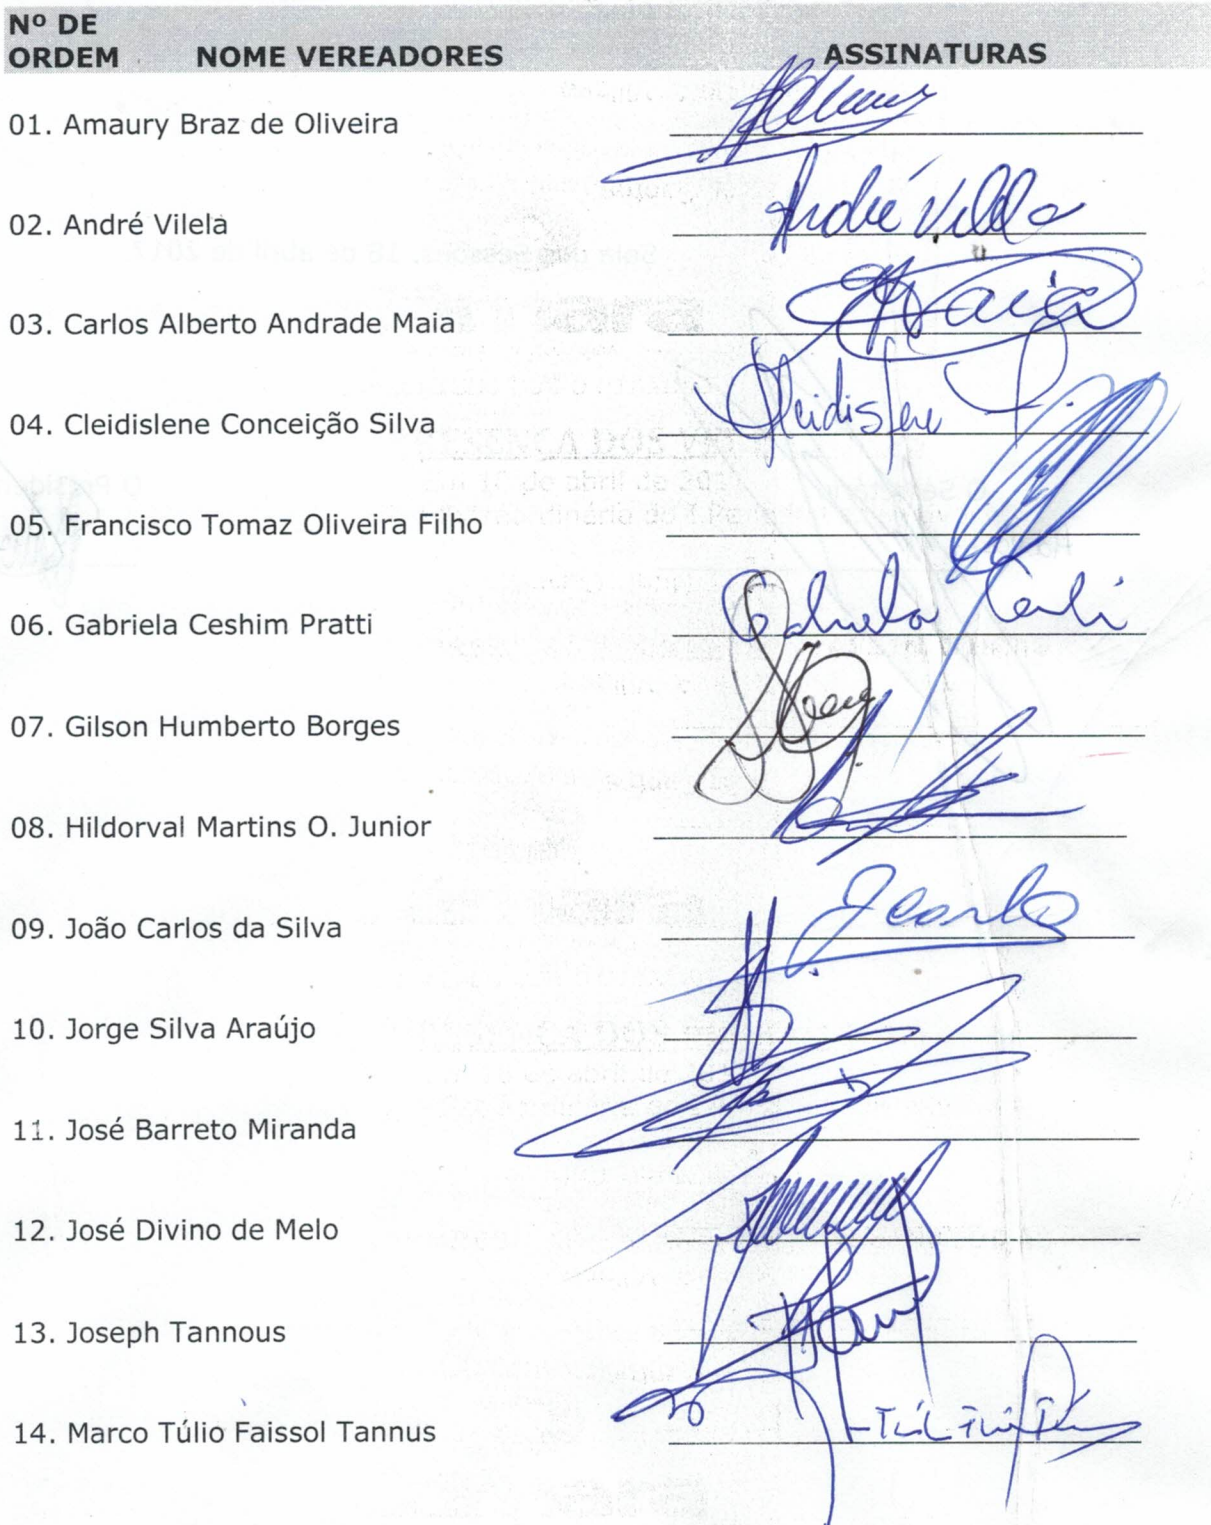 Nº DE
ORDEM NOME VEREADORES ASSINATURAS
01. Amaury Braz de Oliveira
02. André Vilela André Vilela
03. Carlos Alberto Andrade Maia Maia
04. Cleidislene Conceição Silva Cleidislene
05. Francisco Tomaz Oliveira Filho
06. Gabriela Ceshim Pratti Gabriela
07. Gilson Humberto Borges
08. Hildorval Martins O. Junior
09. João Carlos da Silva JCarlos
10. Jorge Silva Araújo
11. José Barreto Miranda
12. José Divino de Melo
13. Joseph Tannous
14. Marco Túlio Faissol Tannus